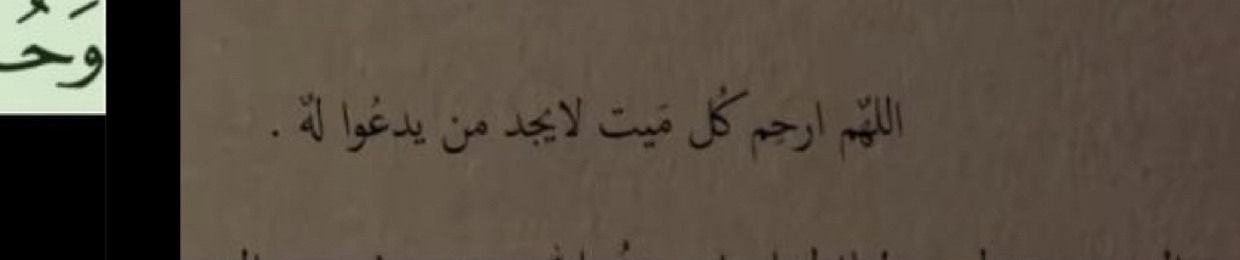 وَحُ
اللهّم ارحِم كُل مَيت لايجد من يدعُوا لهّ .